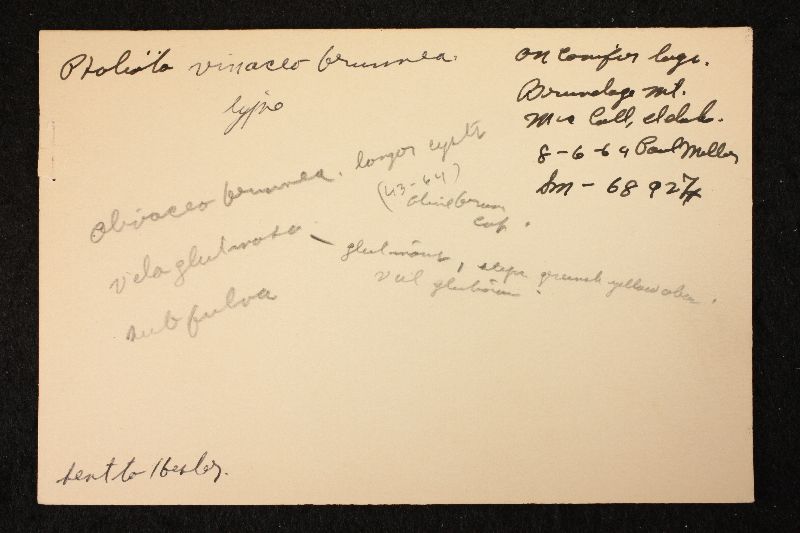 Pholiota vinaceo brunnea.
type
on conifer logs.
Brundage Mt.
Mc Call, Idaho.
8-6-64 Paul Miller
Sm - 68 927
olivaceo brunnea. longer cysts
(43-64)
olive brown
cap.
velaglutinosa - glutinous, stipe greenish yellow above.
veil glutinous.
subfulva
sent to Hesler.